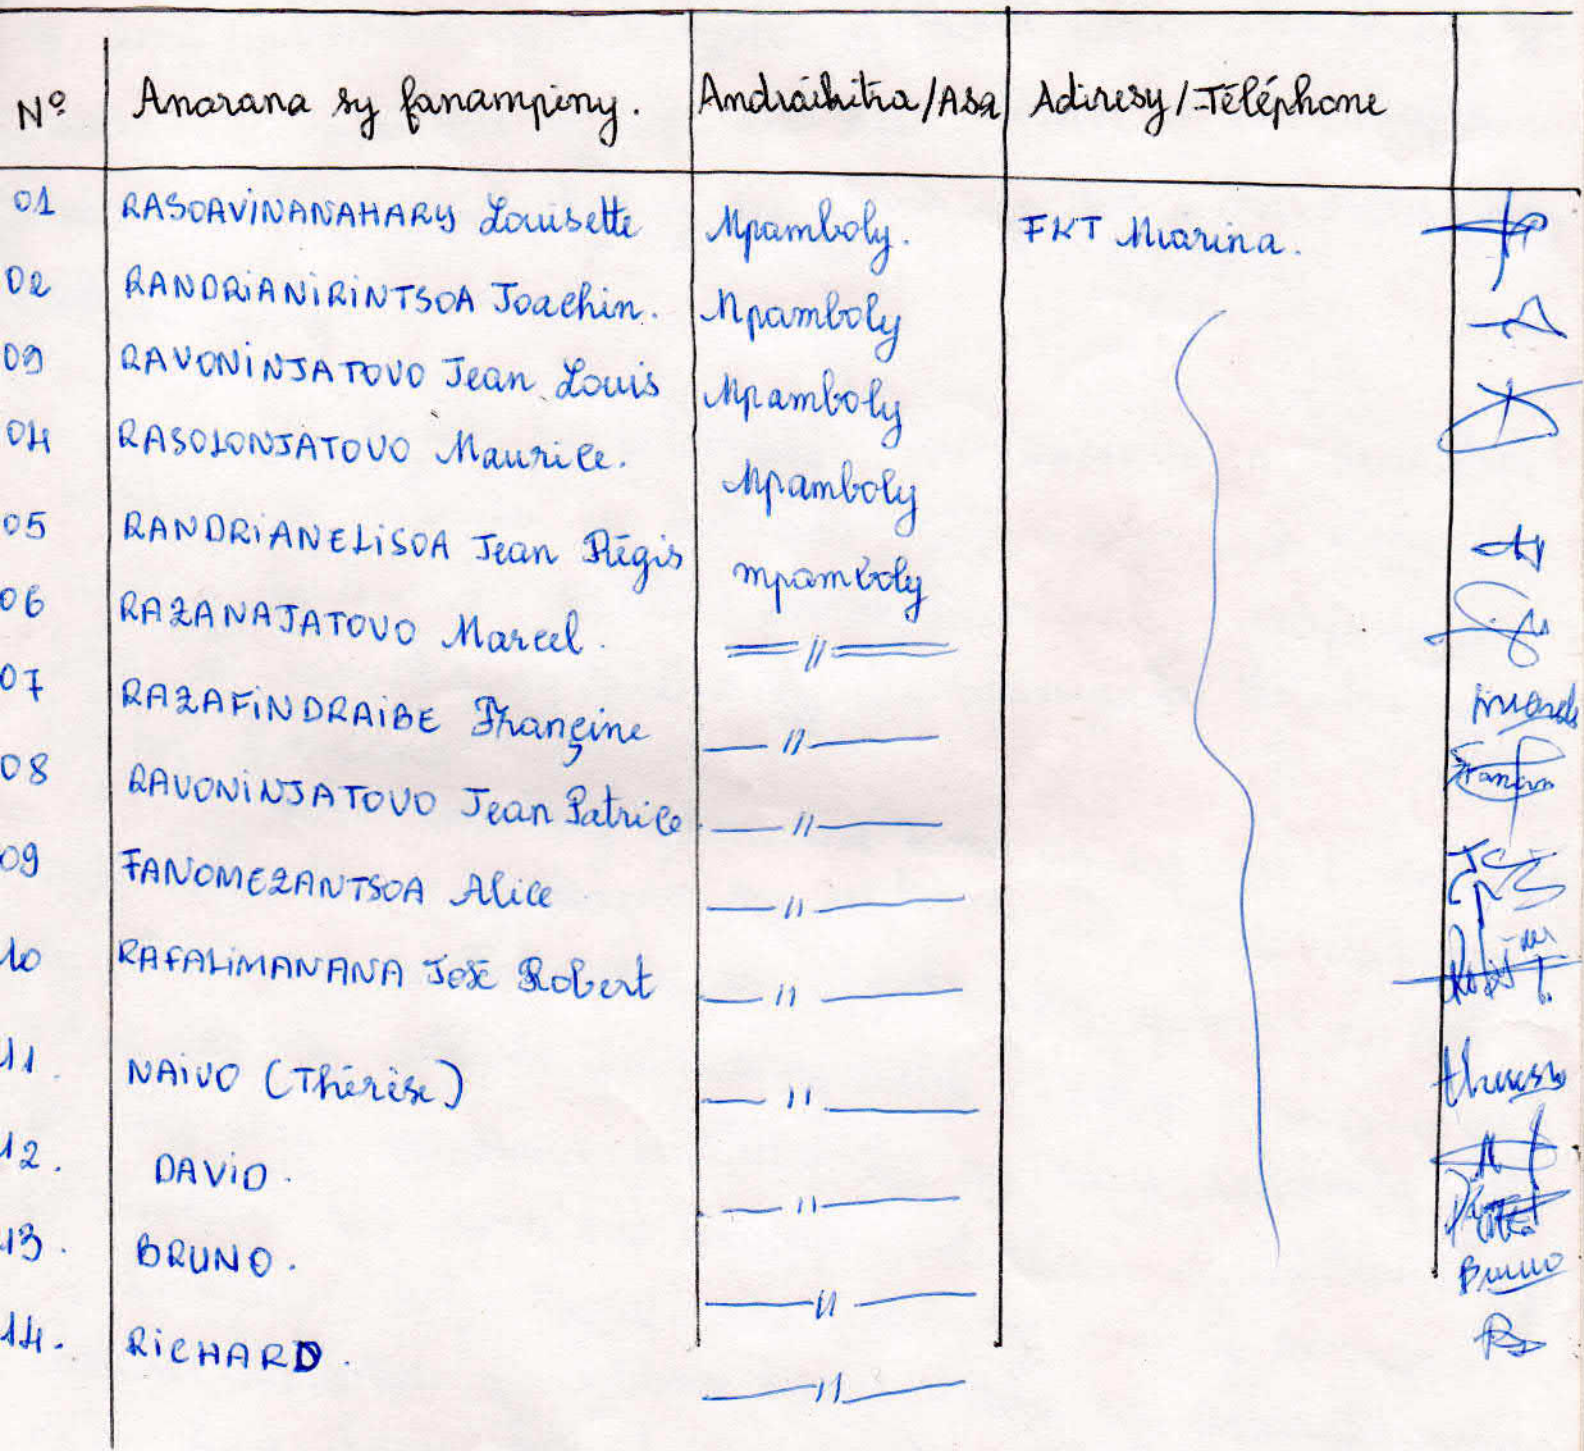 N° Anarana sy fanampiny. Andraikitra/Asa Adiresy/Téléphone
01 RASOAVINANAHARY Louisette Mpamboly. FKT Miarina.
02 RANDRIANIRINTSOA Joachin. Mpamboly
03 RAVONINJATOVO Jean Louis Mpamboly
04 RASOLONJATOVO Maurice. Mpamboly
05 RANDRIANELISOA Jean Régis mpamboly
06 RAZANAJATOVO Marcel. //
07 RAZAFINDRAIBE Françine //
08 RAVONINJATOVO Jean Patrice //
09 FANOMEZANTSOA Alice //
10 RAFALIMANANA José Robert //
11. NAIVO (Thérèse) //
12. DAVID. //
13. BRUNO. // Bruno
14. RICHARD. //